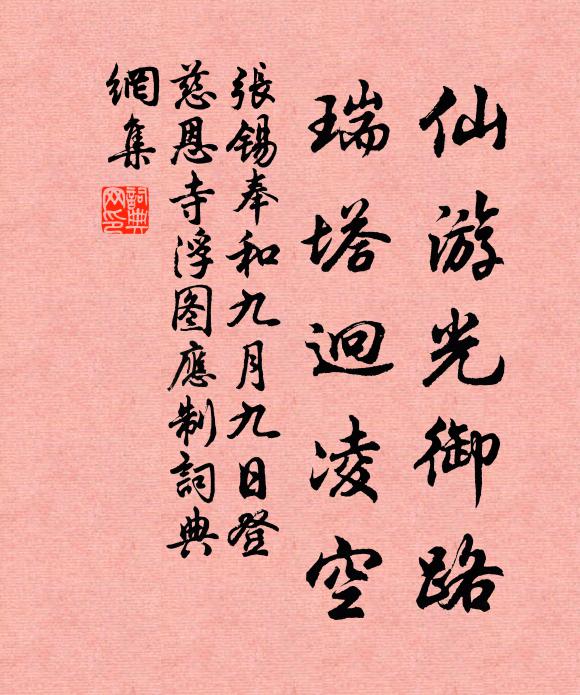 仙游光御路
瑞塔迥凌空
張錫奉和九月九日登
慈恩寺浮图應制詞典
網集
詞典
网印